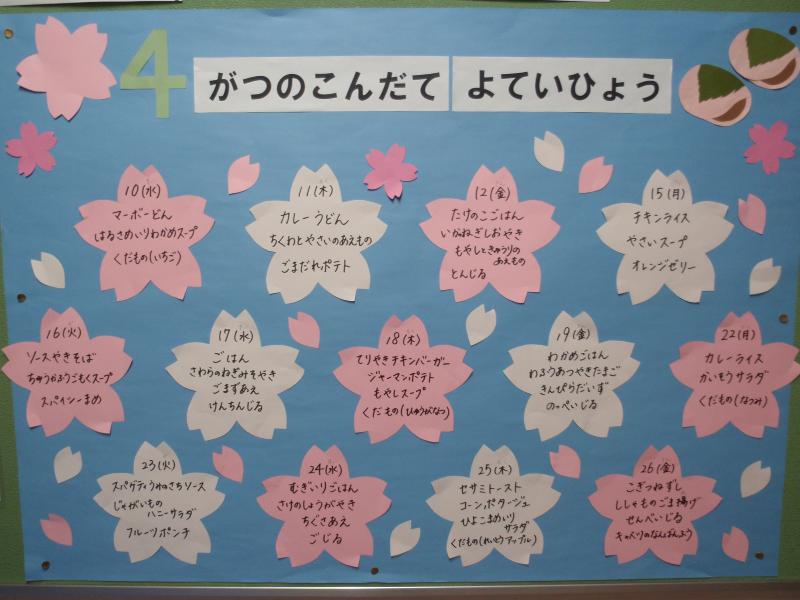 4 がつのこんだて よていひょう
10(水)
マーボーどん
はるさめいりわかめスープ
くだもの(いちご)
11(木)
カレーうどん
ちくわとやさいのあえもの
ごまだれポテト
12(金)
たけのこごはん
いかねぎしおやき
もやしときゅうりの
あえもの
とんじる
15(月)
チキンライス
やさいスープ
オレンジゼリー
16(火)
ソースやきそば
ちゅうかふうごもくスープ
スパイシーまめ
17(水)
ごはん
さわらのねぎみそやき
ごまずあえ
けんちんじる
18(木)
てりやきチキンバーガー
ジャーマンポテト
もやしスープ
くだもの(ひゅうがなつ)
19(金)
わかめごはん
わふうあつやきたまご
きんぴらだいず
のっぺいじる
22(月)
カレーライス
かいそうサラダ
くだもの(なつみ)
23(火)
スパゲティうみのさちソース
じゃがいもの
ハニーサラダ
フルーツポンチ
24(水)
むぎいりごはん
さけのしょうがやき
ちぐさあえ
ごじる
25(木)
セサミトースト
コーンポタージュ
ひよこまめいり
サラダ
くだもの(れいとうアップル)
26(金)
こぎつねずし
ししゃものごま揚げ
せんべいじる
キャベツのなんばんふう